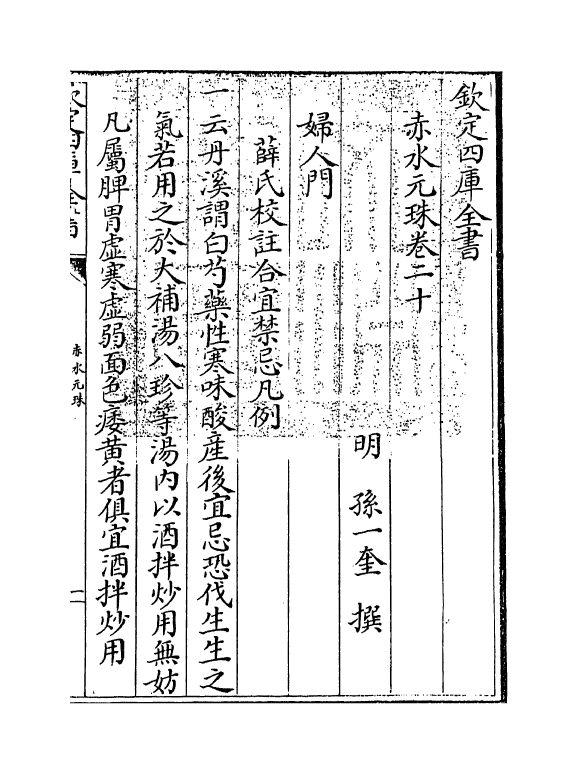 欽定四庫全書
赤水元珠卷二十
明　孫一奎　撰
婦人門
薛氏校註合宜禁忌凡例
一云丹溪謂白芍藥性寒味酸産後宜忌恐伐生生之
氣若用之於大補湯八珍等湯内以酒拌炒用無妨
凡屬脾胃虚寒虚弱面色痿黄者俱宜酒拌炒用
赤水元珠